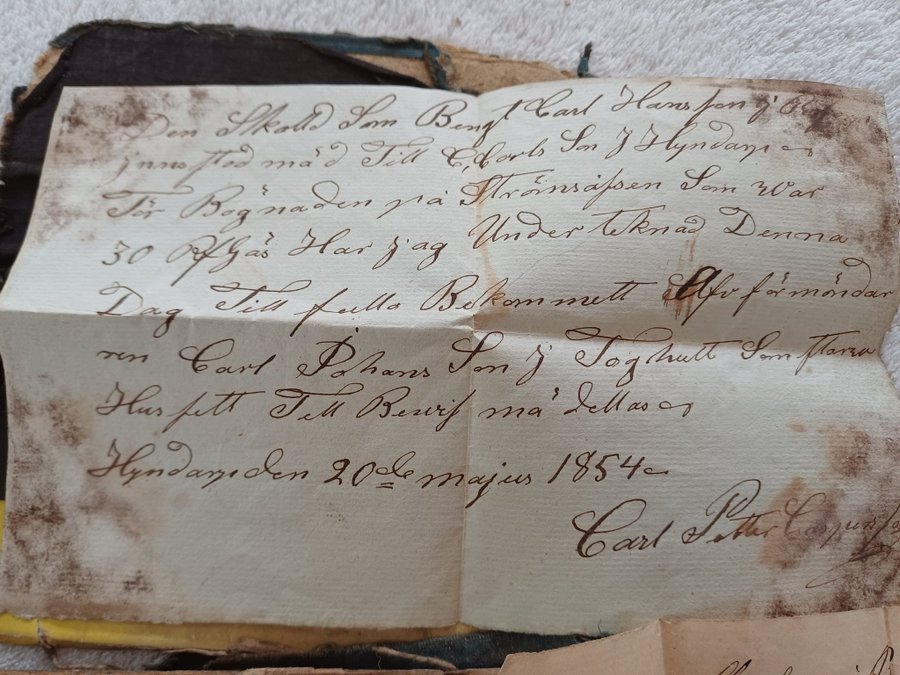 Den Skolld Som Bengt Carl Hansson j
jnne stod mäd Till C, Carls Son J Hyndarp
För Bögnaden på Strönsåssen Som war
30 Rf Har jag Under teknad Denna
Dag Till fullo Bekommett Af förmöndar
ren Carl Johans Son J Toghult Som
Till Bewis må dettas
Hyndarp den 20de majus 1854
Carl Petter